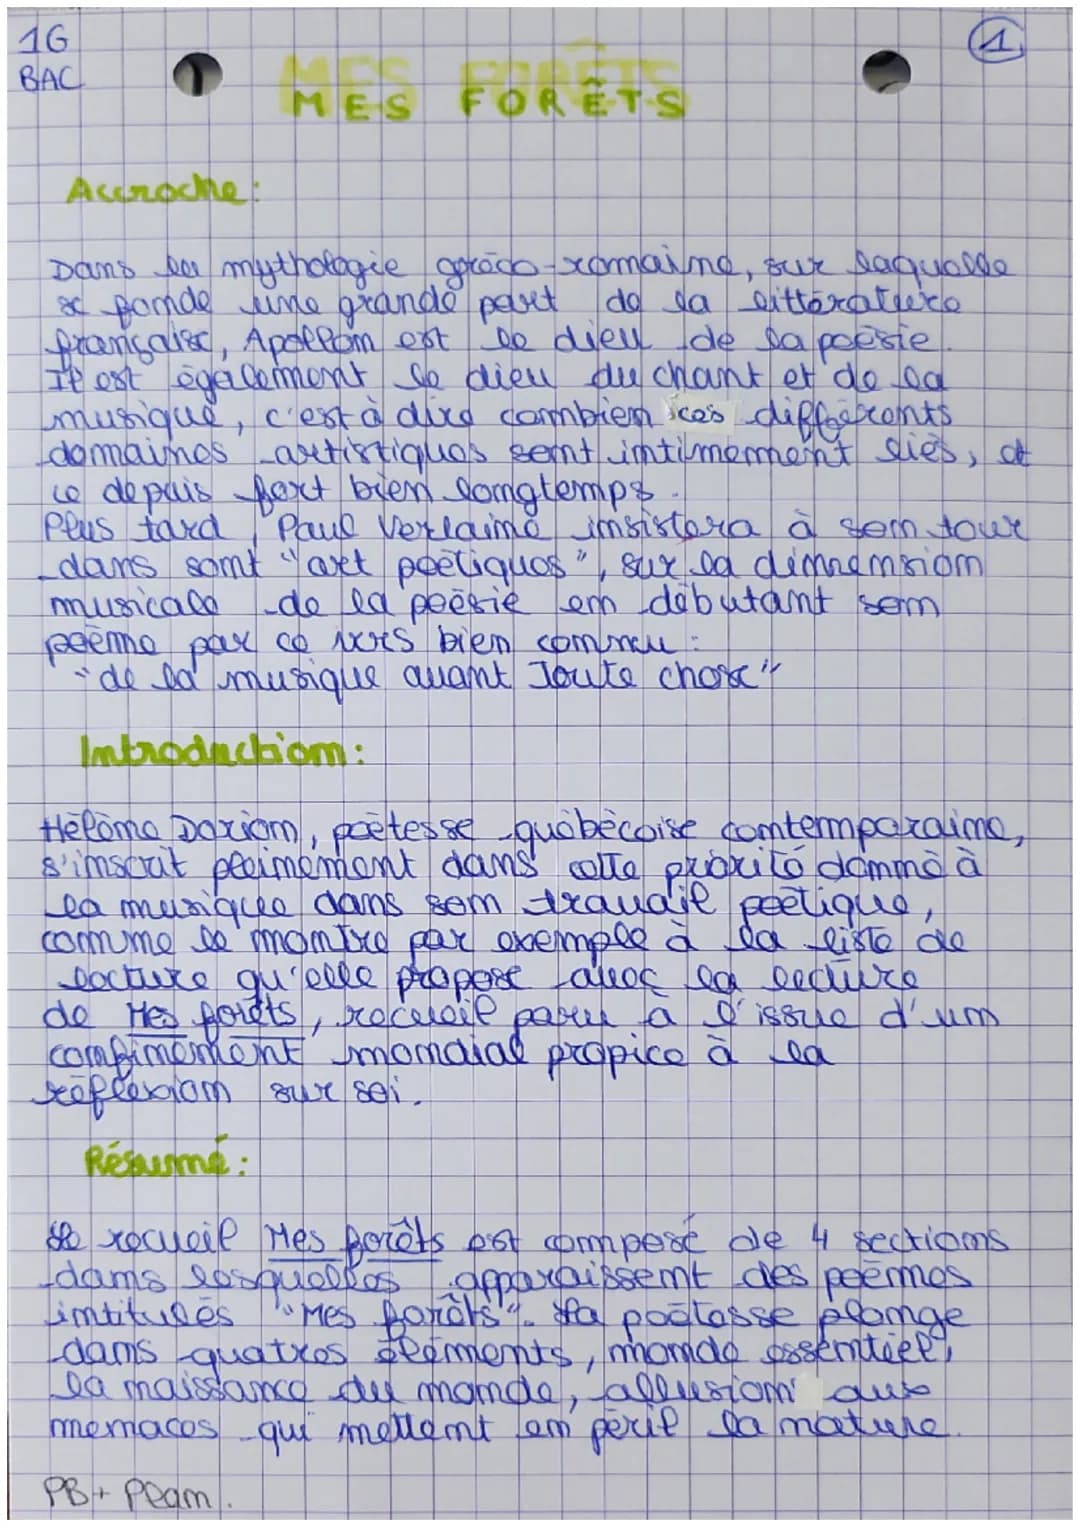 1G
BAC
1
MES FORÊTS
Accroche :
Dans la mythologie gréco-romaine, sur laquelle
se fonde une grande part de la littérature
française, Apollon est le dieu de la poésie.
Il est également le dieu du chant et de la
musique, c'est à dire combien ces différents
domaines artistiques sont intimement liés, et
ce depuis fort bien longtemps.
Plus tard, Paul Verlaine insistera à son tour
dans sont "art poétiques", sur la dimnension
musicale de la poésie en débutant son
poème par ce vers bien connu :
"de la musique avant Toute chose"
Introduction :
Hélène Dorion, poétesse québécoise contemporaine,
s'inscrit pleinement dans cette priorité donné à
la musique dans son travail poétique,
comme le montre par exemple à la liste de
lecture qu'elle propose avec la lecture
de Mes forêts, recueil paru à l'issue d'un
confinement mondial propice à la
réflexion sur soi.
Résumé :
Le recueil Mes forêts est composé de 4 sections
dans lesquelles apparaissent des poèmes
intitulés "Mes forêts". La poétesse plonge
dans quatres éléments, monde essentiel,
la naissance du monde, allusion aux
menaces qui mettent en péril la nature.
PB + Plan.